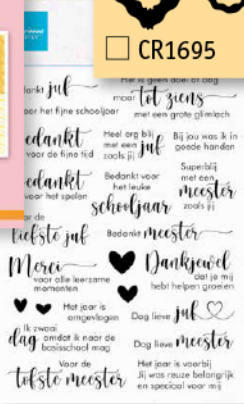 CR1695
Het is geen doei of dag
maar tot ziens
met een grote glimlach
juf
het fijne schooljaar
Heel erg blij
met een juf
zoals jij
Bij jou was ik in
goede handen
voor de fijne tijd
Bedankt voor
het leuke
schooljaar
voor het spelen
Superblij
met een
meester
zoals jij
liefste juf
Bedankt meester
Merci
voor alle leerzame
momenten
Dankjewel
dat je mij
hebt helpen groeien
Het jaar is
omgevlogen
Dag lieve juf
Ik zwaai
dag omdat ik naar de
basisschool mag
Dag lieve meester
Voor de
tofste meester
Het jaar is voorbij
Jij was reuze belangrijk
en speciaal voor mij